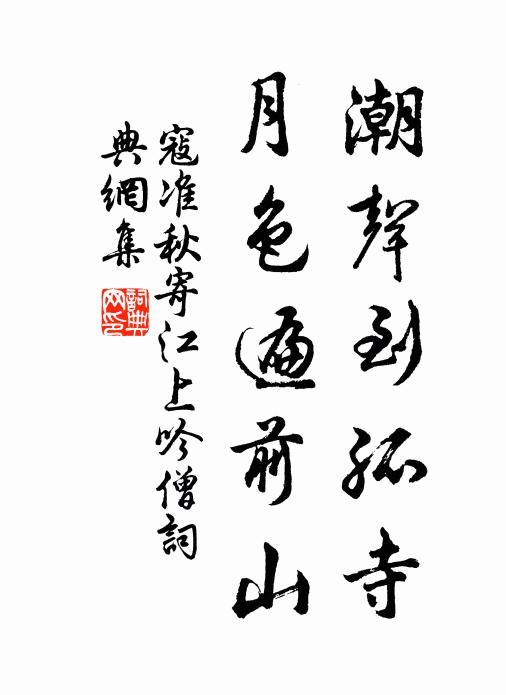 潮聲到孤寺
月色遍前山
寇准秋寄江上吟僧詞
典網集
詞典網印